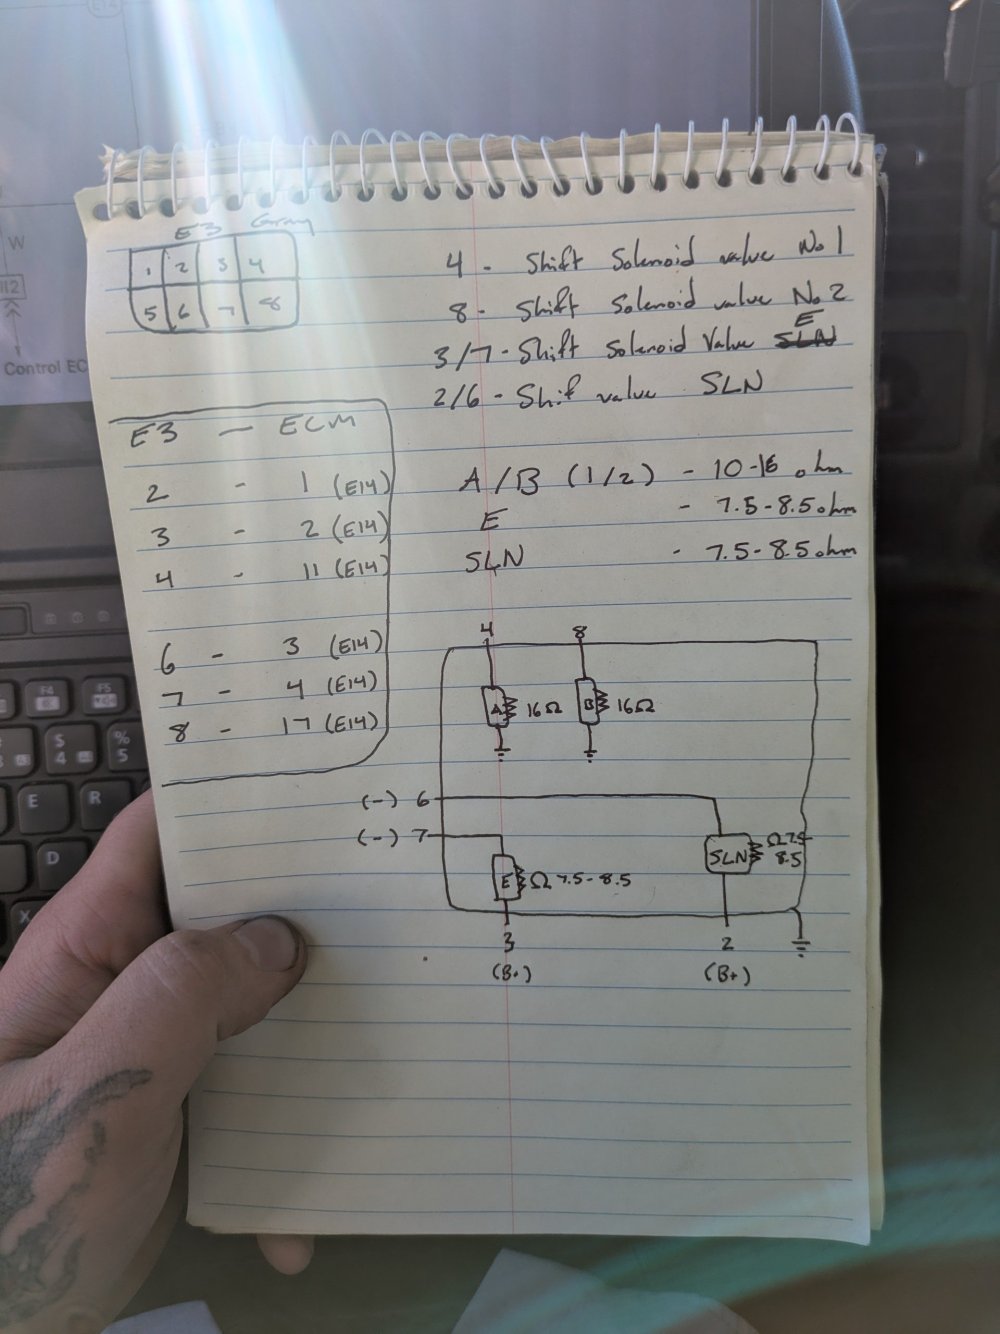 E3 Gray
1 2 3 4
5 6 7 8
4 - Shift Solenoid valve No 1
8 - Shift Solenoid valve No 2
E
3/7 - Shift Solenoid Valve SLN
2/6 - Shif valve SLN
E3 - ECM
2 - 1 (E14)
3 - 2 (E14)
4 - 11 (E14)
6 - 3 (E14)
7 - 4 (E14)
8 - 17 (E14)
A/B (1/2) - 10-16 ohm
E - 7.5-8.5 ohm
SLN - 7.5-8.5 ohm
4 8
A 16Ω B 16Ω
(-) 6
(-) 7
SLN Ω 7.5
8.5
E Ω 7.5-8.5
3 2
(B+) (B+)
W
Control EC
F4 F5
$ %
4 5
E R
D
X